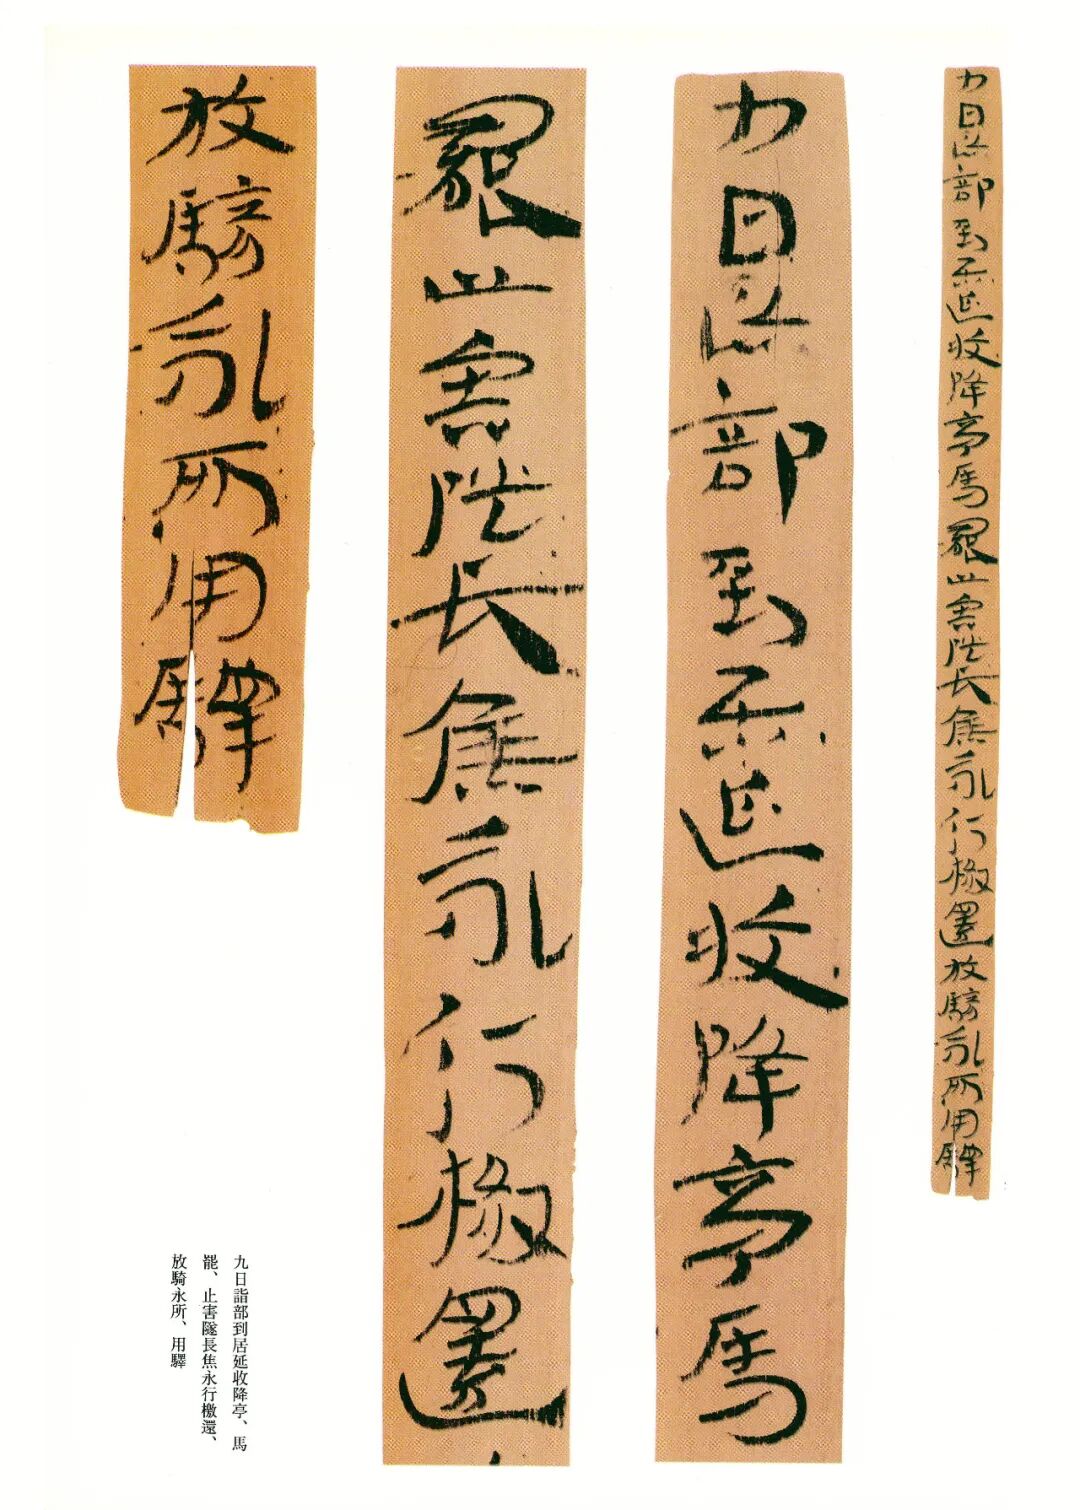 九日詣部到居延收降亭馬罷止害隧長焦永行檄還放騎永所用驛
九日詣部到居延收降亭馬
罷止害隧長焦永行檄還
放騎永所用驛
九日詣部到居延收降亭、馬
罷、止害隧長焦永行檄還、
放騎永所、用驛